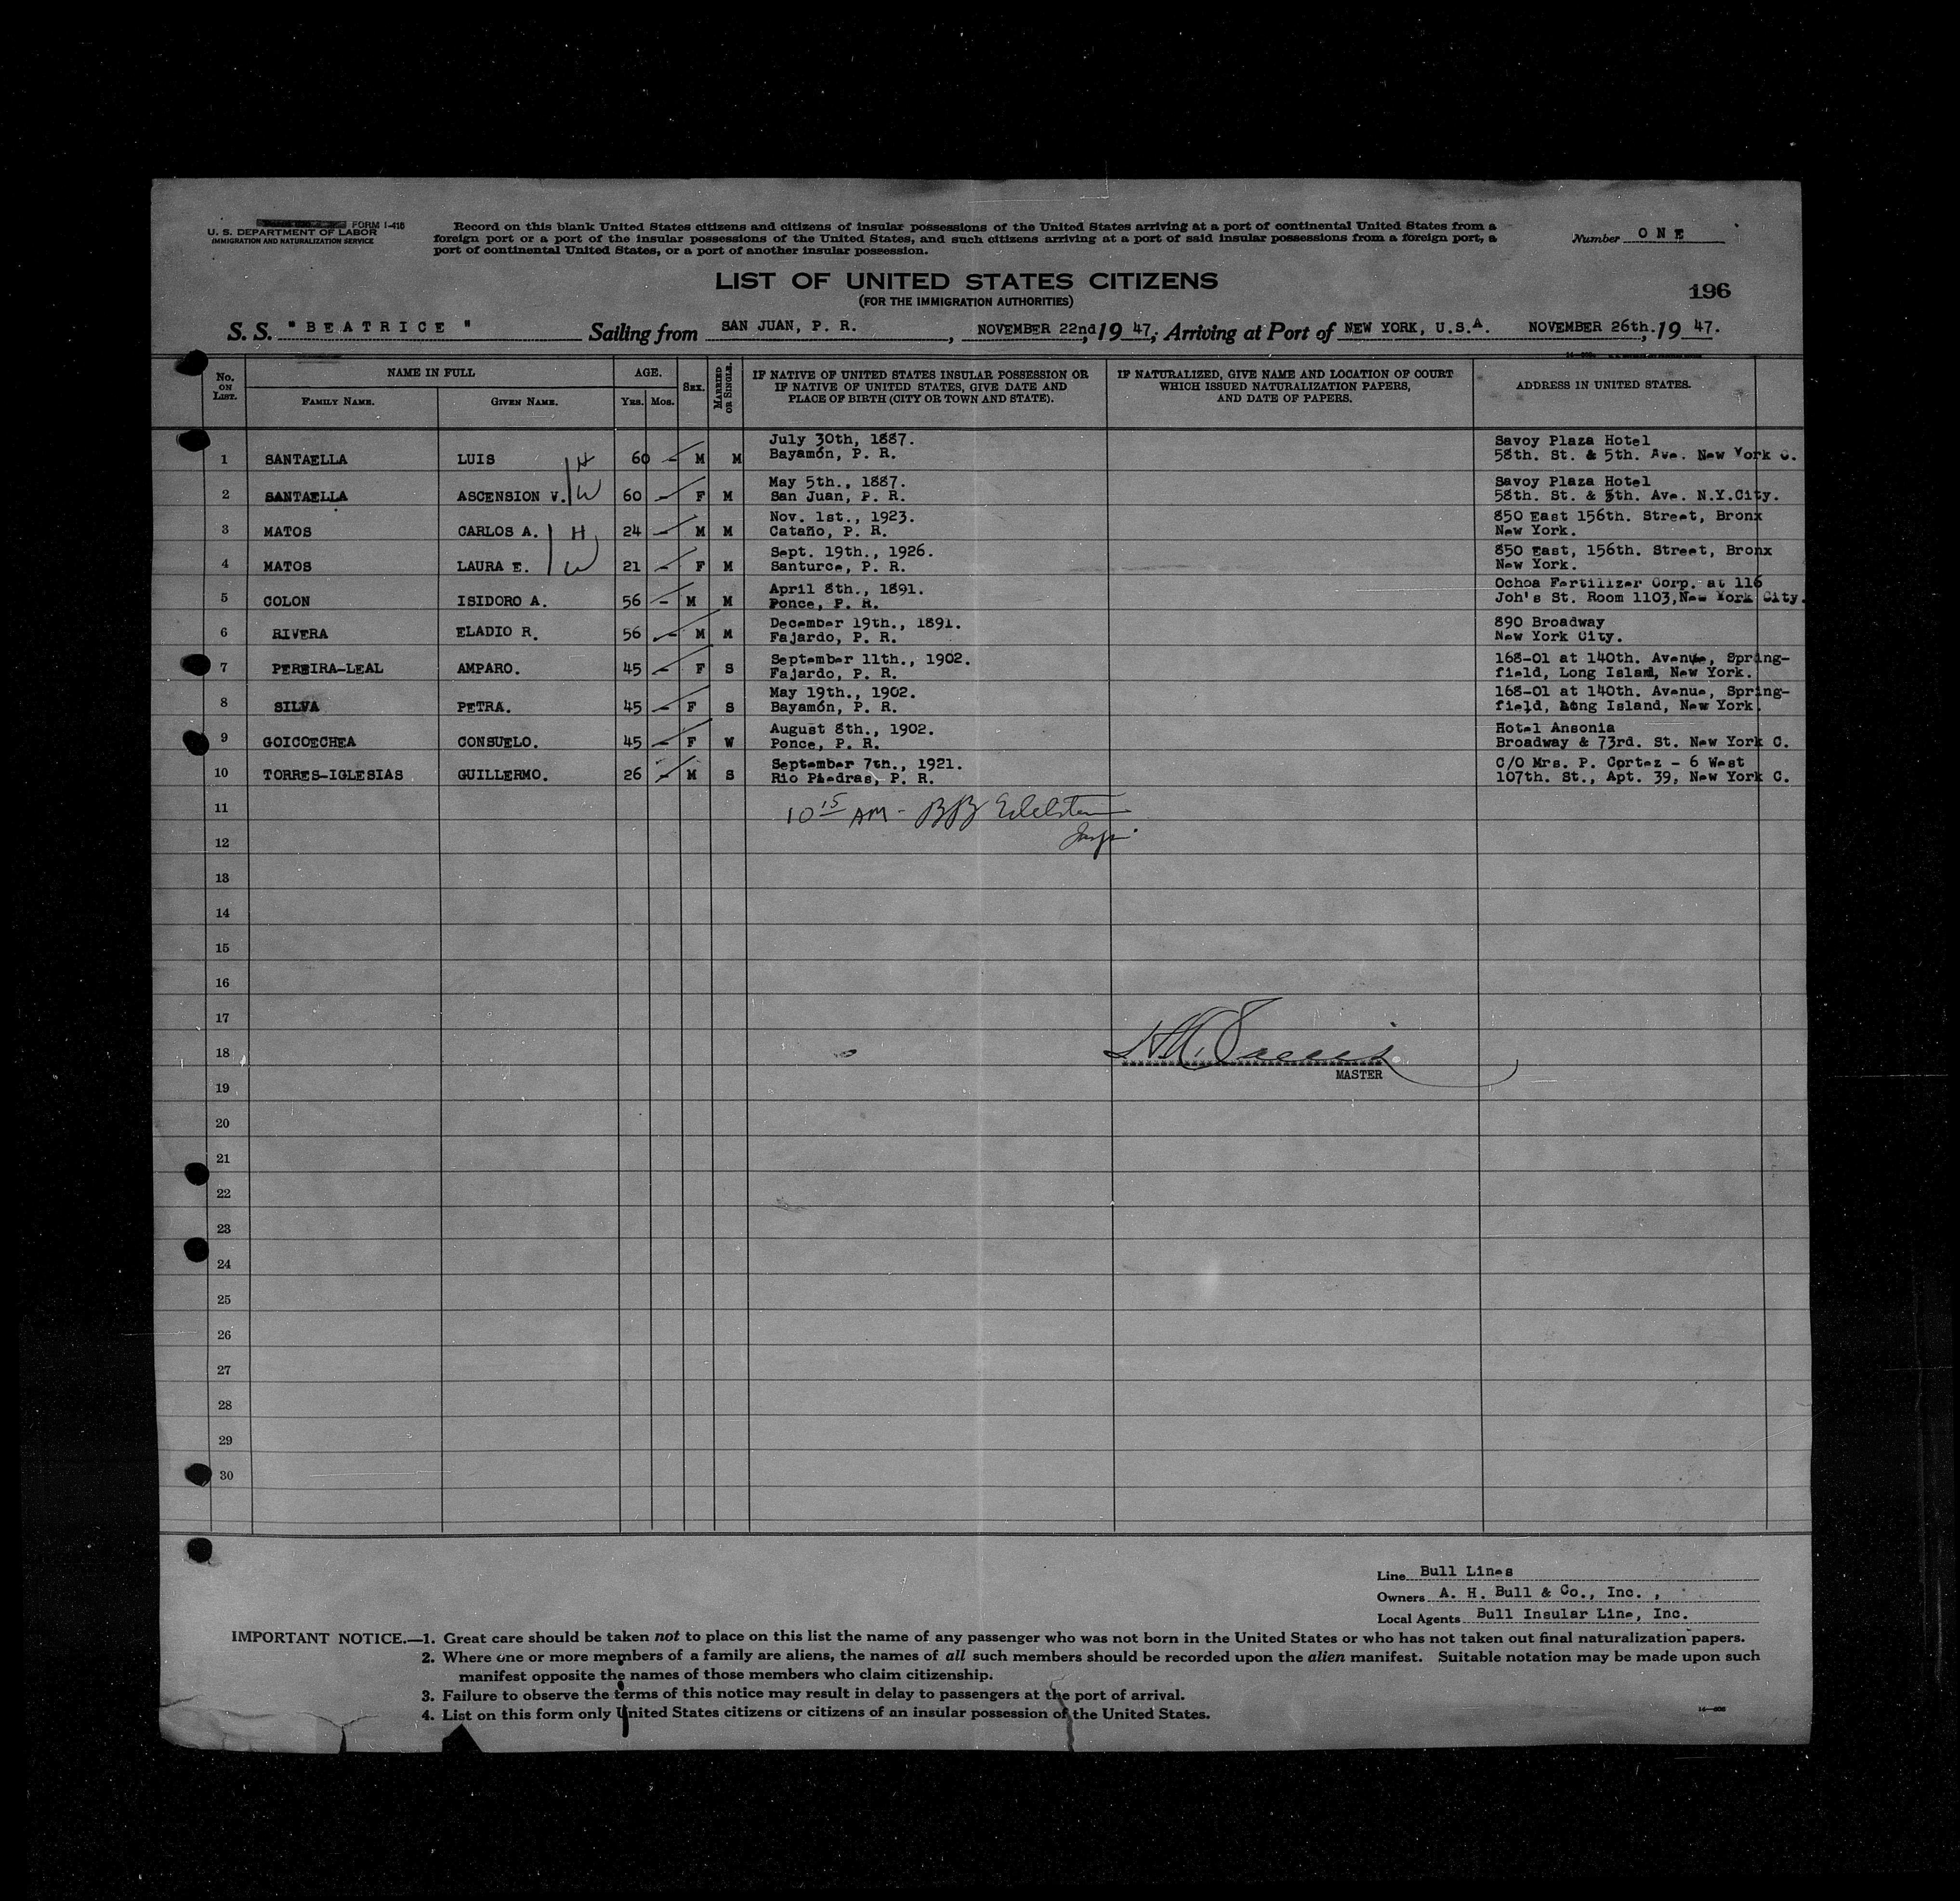 FORM I-416
U. S. DEPARTMENT OF LABOR
IMMIGRATION AND NATURALIZATION SERVICE
Record on this blank United States citizens and citizens of insular possessions of the United States arriving at a port of continental United States from a
foreign port or a port of the insular possessions of the United States, and such citizens arriving at a port of said insular possessions from a foreign port, a
port of continental United States, or a port of another insular possession.
Number ONE
LIST OF UNITED STATES CITIZENS
(FOR THE IMMIGRATION AUTHORITIES)
196
S. S. "BEATRICE" Sailing from SAN JUAN, P. R., NOVEMBER 22nd, 19 47, Arriving at Port of NEW YORK, U.S.A. NOVEMBER 26th., 19 47.
No. ON LIST. NAME IN FULL FAMILY NAME. GIVEN NAME. AGE. YRS. MOS. SEX. MARRIED OR SINGLE. IF NATIVE OF UNITED STATES INSULAR POSSESSION OR IF NATIVE OF UNITED STATES, GIVE DATE AND PLACE OF BIRTH (CITY OR TOWN AND STATE). IF NATURALIZED, GIVE NAME AND LOCATION OF COURT WHICH ISSUED NATURALIZATION PAPERS, AND DATE OF PAPERS. ADDRESS IN UNITED STATES.
1 SANTAELLA LUIS H 60 - M M July 30th, 1887. Bayamón, P. R. Savoy Plaza Hotel 58th. St. & 5th. Ave. New York C.
2 SANTAELLA ASCENSION V. W 60 - F M May 5th., 1887. San Juan, P. R. Savoy Plaza Hotel 58th. St. & 5th. Ave. N.Y.City.
3 MATOS CARLOS A. H 24 - M M Nov. 1st., 1923. Cataño, P. R. 850 East 156th. Street, Bronx New York.
4 MATOS LAURA E. W 21 - F M Sept. 19th., 1926. Santurce, P. R. 850 East, 156th. Street, Bronx New York.
5 COLON ISIDORO A. 56 - M M April 8th., 1891. Ponce, P. R. Ochoa Fertilizer Corp. at 116 Joh's St. Room 1103, New York City.
6 RIVERA ELADIO R. 56 - M M December 19th., 1891. Fajardo, P. R. 890 Broadway New York City.
7 PEREIRA-LEAL AMPARO. 45 - F S September 11th., 1902. Fajardo, P. R. 168-01 at 140th. Avenue, Spring- field, Long Island, New York.
8 SILVA PETRA. 45 - F S May 19th., 1902. Bayamón, P. R. 168-01 at 140th. Avenue, Spring- field, Long Island, New York.
9 GOICOECHEA CONSUELO. 45 - F W August 8th., 1902. Ponce, P. R. Hotel Ansonia Broadway & 73rd. St. New York C.
10 TORRES-IGLESIAS GUILLERMO. 26 - M S September 7th., 1921. Rio Piedras, P. R. C/O Mrs. P. Cortez - 6 West 107th. St., Apt. 39, New York C.
11 10 15 AM - BB Edelstein
12 Insp.
13
14
15
16
17
18
MASTER
19
20
21
22
23
24
25
26
27
28
29
30
Line Bull Lines
Owners A. H. Bull & Co., Inc.,
Local Agents Bull Insular Line, Inc.
IMPORTANT NOTICE.—1. Great care should be taken not to place on this list the name of any passenger who was not born in the United States or who has not taken out final naturalization papers.
2. Where one or more members of a family are aliens, the names of all such members should be recorded upon the alien manifest. Suitable notation may be made upon such
manifest opposite the names of those members who claim citizenship.
3. Failure to observe the terms of this notice may result in delay to passengers at the port of arrival.
4. List on this form only United States citizens or citizens of an insular possession of the United States.